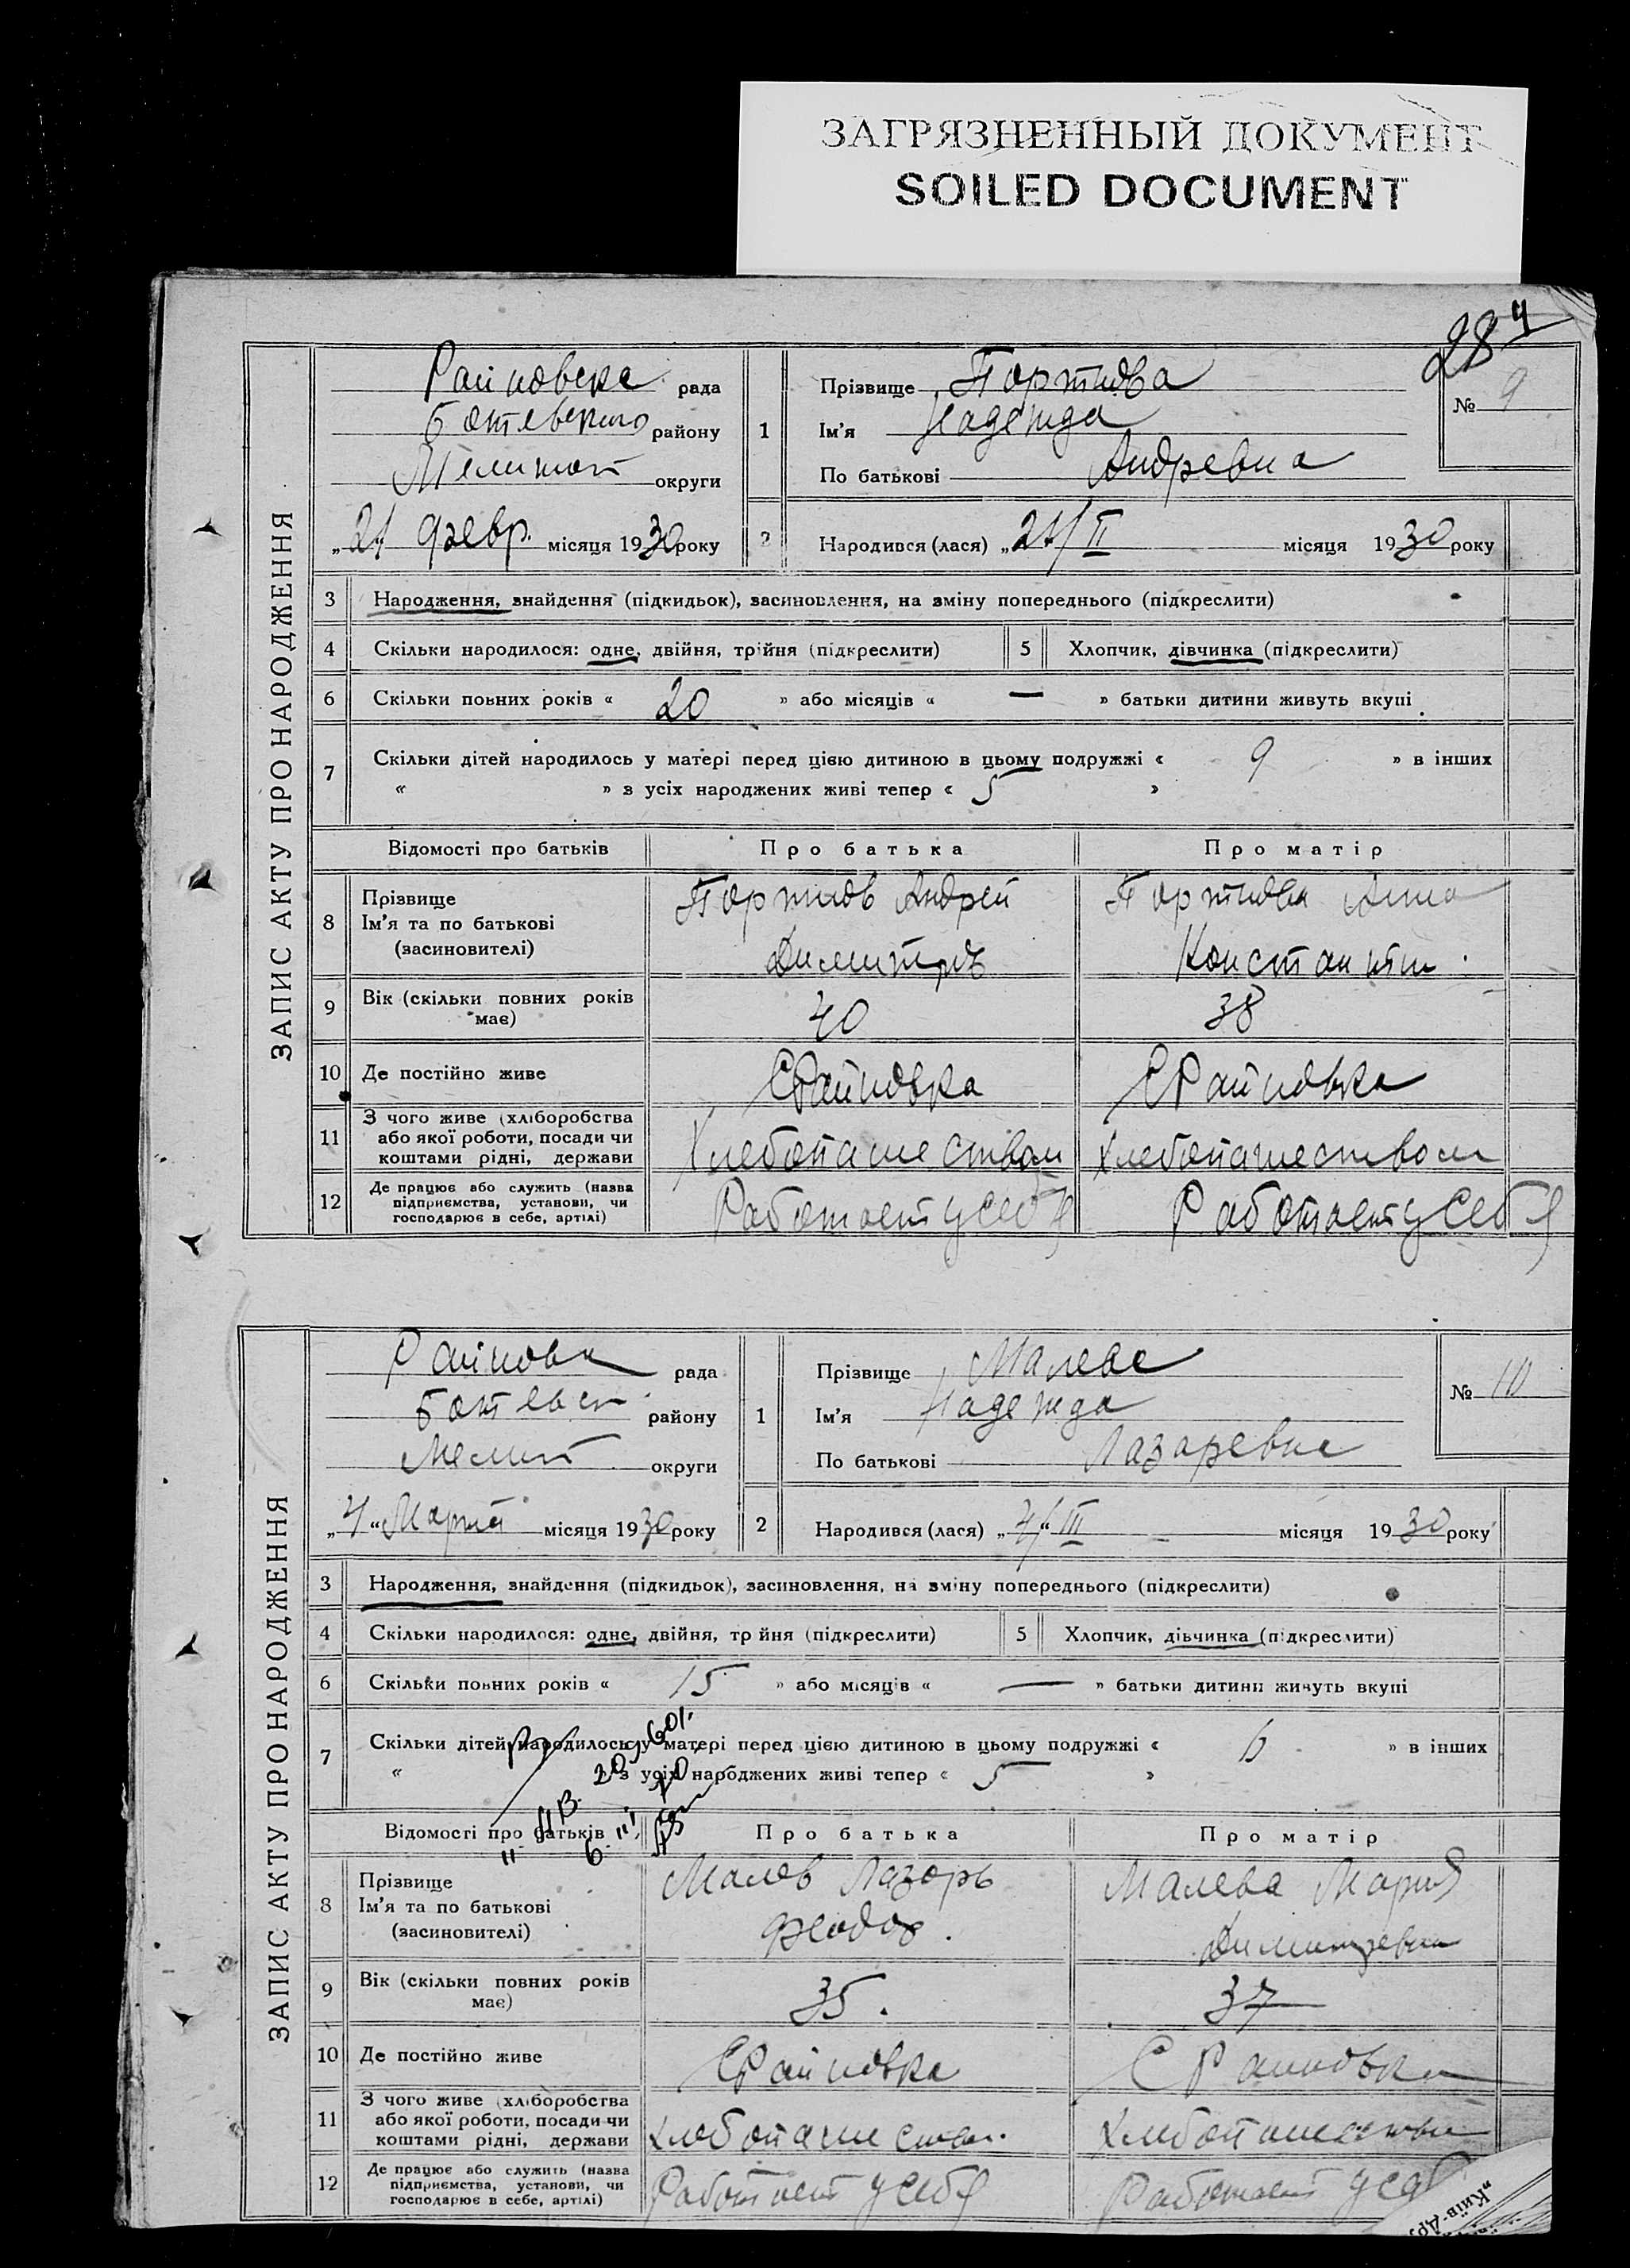 ЗАГРЯЗНЕННЫЙ ДОКУМЕНТ
SOILED DOCUMENT
28 4
ЗАПИС АКТУ ПРО НАРОДЖЕННЯ
Райновска рада
Ботевского району
Мелитоп округи
„21 февр. місяця 1930 року
1 Прізвище Портнова
Ім'я Надежда
По батькові Андревна
№ 9
2 Народився (лася) „21/II місяця 1930 року
3 Народження, знайдення (підкидьок), засиновлення, на зміну попереднього (підкреслити)
4 Скільки народилося: одне, двійня, трійня (підкреслити) 5 Хлопчик, дівчинка (підкреслити)
6 Скільки повних років « 20 » або місяців « — » батьки дитини живуть вкупі
7 Скільки дітей народилось у матері перед цією дитиною в цьому подружжі « 9 » в інших
« » з усіх народжених живі тепер « 5 »
Відомості про батьків Про батька Про матір
8 Прізвище
Ім'я та по батькові
(засиновителі)
Портнов Андрей
Димитров
Портнова Анна
Константин.
9 Вік (скільки повних років
має)
40 38
10 Де постійно живе С Райновка С Райновка
11 З чого живе (хліборобства
або якої роботи, посади чи
коштами рідні, держави
Хлебопашеством Хлебопашеством
12 Де працює або служить (назва
підприємства, установи, чи
господарює в себе, артілі)
Работает у себя Работает у себя
ЗАПИС АКТУ ПРО НАРОДЖЕННЯ
Райновск рада
Ботевск району
Мелит округи
„4" Марта місяця 1930 року
1 Прізвище Малева
Ім'я Надежда
По батькові Лазаревна
№ 10
2 Народився (лася) „4/" III місяця 1930 року
3 Народження, знайдення (підкидьок), засиновлення, на зміну попереднього (підкреслити)
4 Скільки народилося: одне, двійня, трійня (підкреслити) 5 Хлопчик, дівчинка (підкреслити)
6 Скільки повних років « 15 » або місяців « — » батьки дитини живуть вкупі
7 Скільки дітей народилось у матері перед цією дитиною в цьому подружжі « 6 » в інших
« » з усіх народжених живі тепер « 5 »
Відомості про батьків Про батька Про матір
8 Прізвище
Ім'я та по батькові
(засиновителі)
Малев Лазорь
Феодор.
Малева Мария
Димитревна
9 Вік (скільки повних років
має)
35. 37
10 Де постійно живе С Райновка С Райновка
11 З чого живе (хліборобства
або якої роботи, посади чи
коштами рідні, держави
Хлебопашеством. Хлебопашеством
12 Де працює або служить (назва
підприємства, установи, чи
господарює в себе, артілі)
Работает у себя Работает у себ
„Київ-Др